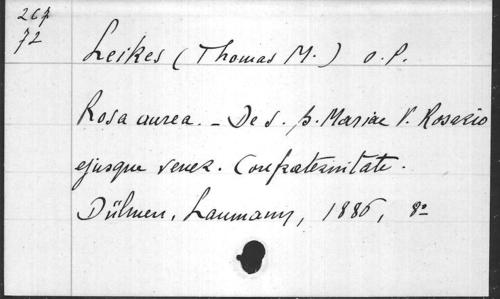 267
72
Leikes (Thomas M.) O.P.
Rosa aurea. - De s. p. Mariae V. Rosario
ejusque vener. Confraternitate.
Dülmen, Laumann, 1886, 8º